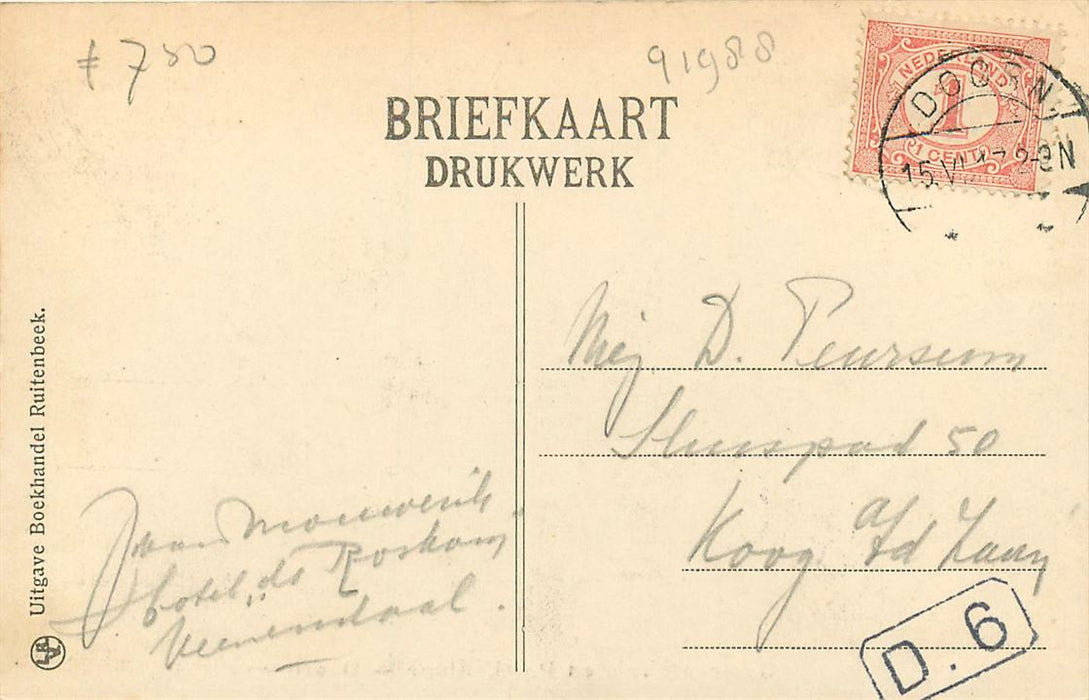 750
91988
BRIEFKAART
DRUKWERK
NEDERLAND
1
1 CENT
DOORN
15.VI 17 2-3N
Mej D. Peursum
Sluispad 50
Koog a/d Zaan
D.6
J van Mourik
Hotel "de Roskam"
Veenendaal.
Uitgave Boekhandel Ruitenbeek.